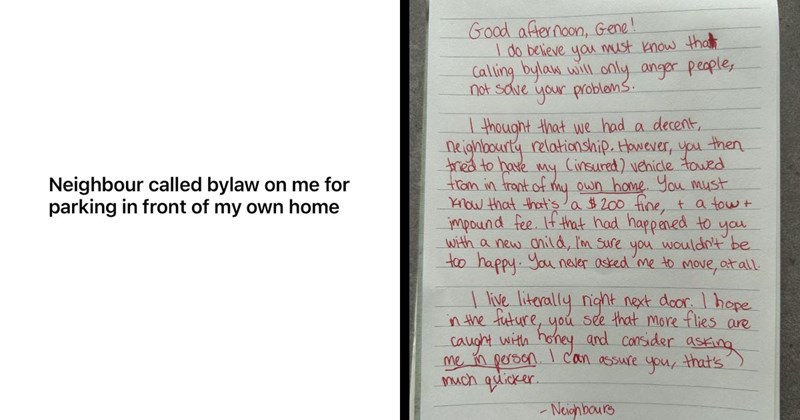 Neighbour called bylaw on me for
parking in front of my own home
Good afternoon, Gene!
I do believe you must know that
calling bylaw will only anger people,
not solve your problems.
I thought that we had a decent,
neighbourly relationship. However, you then
tried to have my (insured) vehicle towed
from in front of my own home. You must
know that that's a $200 fine, + a tow +
impound fee. If that had happened to you
with a new child, I'm sure you wouldn't be
too happy. You never asked me to move, at all.
I live literally right next door. I hope
in the future, you see that more flies are
caught with honey and consider asking
me in person. I can assure you, that's
much quicker.
- Neighbours